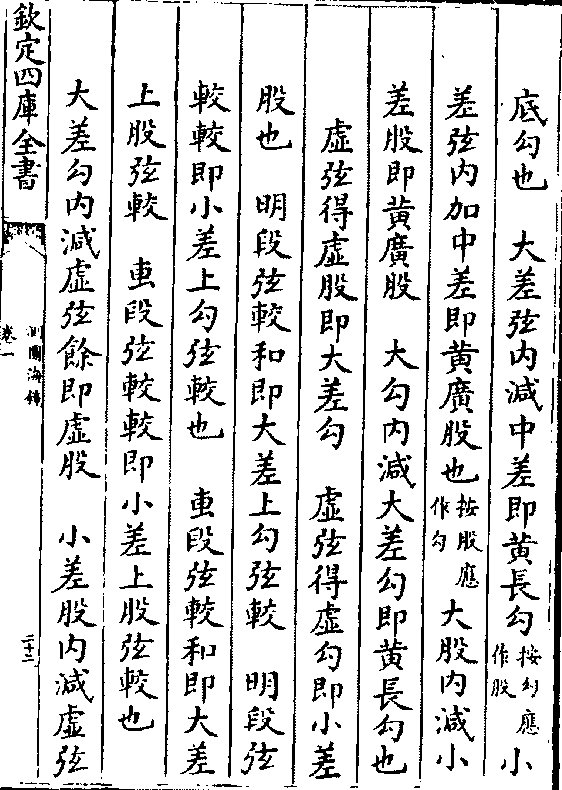 底勾也　大差弦内減中差即黄長勾按勾應作股小
差弦内加中差即黄廣股也按股應作勾大股内減小
差股即黄廣股　大勾内減大差勾即黄長勾也
虛弦得虛股即大差勾　虛弦得虛勾即小差
股也　明段弦較和即大差上勾弦較　明段弦
較較即小差上勾弦較也　叀段弦較和即大差
上股弦較　叀段弦較較即小差上股弦較也
大差勾内減虛弦餘即虛股　小差股内減虛弦
欽定四庫全書
測圓海鏡
卷一
二十二